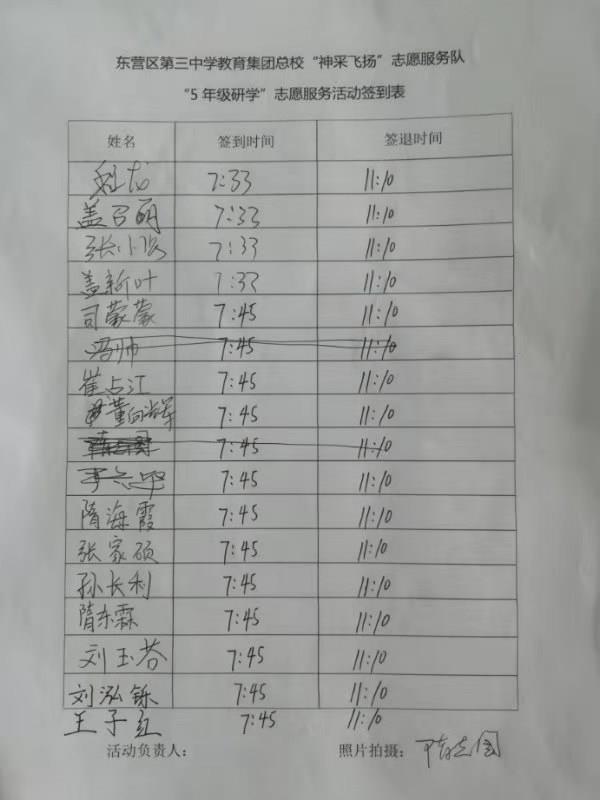 东营区第三中学教育集团总校“神采飞扬”志愿服务队
“5 年级研学”志愿服务活动签到表
姓名 签到时间 签退时间
7:33 11:10
盖召朋 7:33 11:10
7:33 11:10
盖新叶 7:33 11:10
司蒙蒙 7:45 11:10
冯帅 7:45 11:10
崔占江 7:45 11:10
董向辉 7:45 11:10
7:45 11:10
7:45 11:10
隋海霞 7:45 11:10
张家硕 7:45 11:10
孙长利 7:45 11:10
隋东霖 7:45 11:10
刘玉芬 7:45 11:10
刘泓铄 7:45 11:10
王子红 7:45 11:10
活动负责人： 照片拍摄：